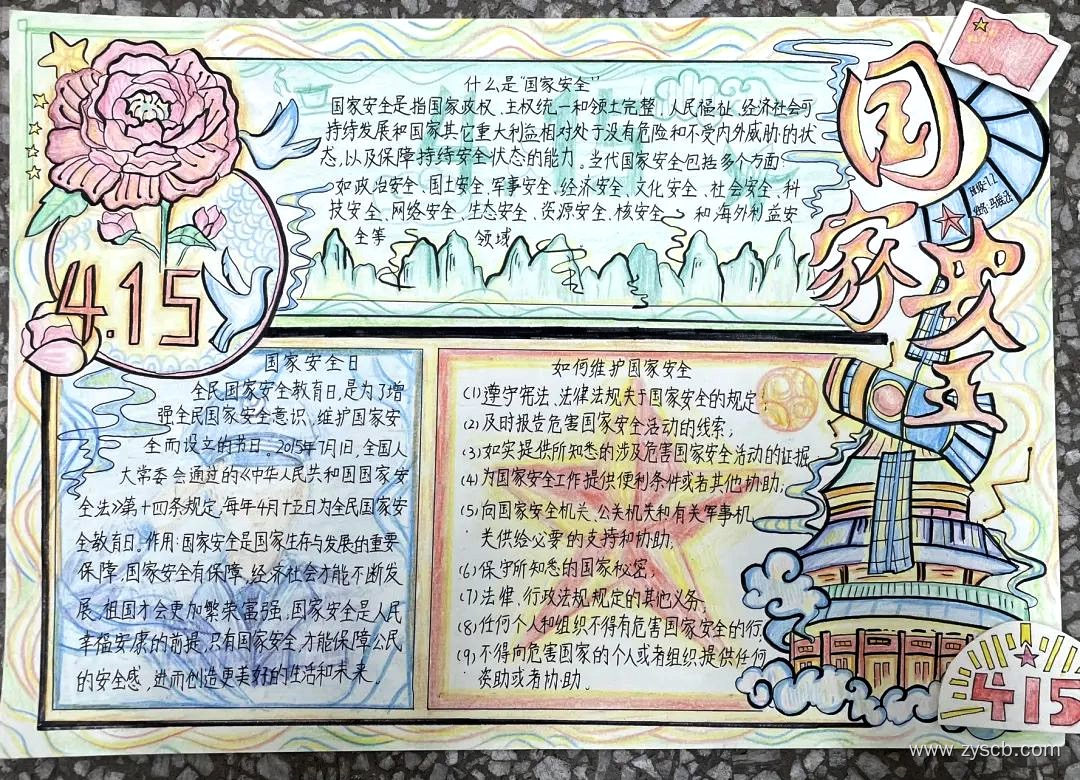 什么是"国家安全"
国家安全是指国家政权、主权统一和领土完整、人民福祉、经济社会可
持续发展和国家其它重大利益相对处于没有危险和不受内外威胁的状
态,以及保障持续安全状态的能力。当代国家安全包括多个方面
如政治安全、国土安全、军事安全、经济安全、文化安全、社会安全、科
技安全、网络安全、生态安全、资源安全、核安全、和海外利益安
全等 领域
4.15
国家安全
班级:1.2
国家安全日
全民国家安全教育日,是为了增
强全民国家安全意识,维护国家安
全而设立的节日。2015年7月1日,全国人
大常委会通过的《中华人民共和国国家安
全法》第十四条规定,每年4月十五日为全民国家安
全教育日。作用:国家安全是国家生存与发展的重要
保障,国家安全有保障,经济社会才能不断发
展,祖国才会更加繁荣富强,国家安全是人民
幸福安康的前提,只有国家安全,才能保障公民
的安全感,进而创造更美好的生活和未来。
如何维护国家安全
(1)遵守宪法、法律法规关于国家安全的规定;
(2)及时报告危害国家安全活动的线索;
(3)如实提供所知悉的涉及危害国家安全活动的证据
(4)为国家安全工作提供便利条件或者其他协助;
(5)向国家安全机关、公关机关和有关军事机
关供给必要的支持和协助;
(6)保守所知悉的国家秘密;
(7)法律、行政法规规定的其他义务;
(8)任何个人和组织不得有危害国家安全的行
(9)不得向危害国家的个人或者组织提供任何
资助或者协助。
415
www.zyscb.com